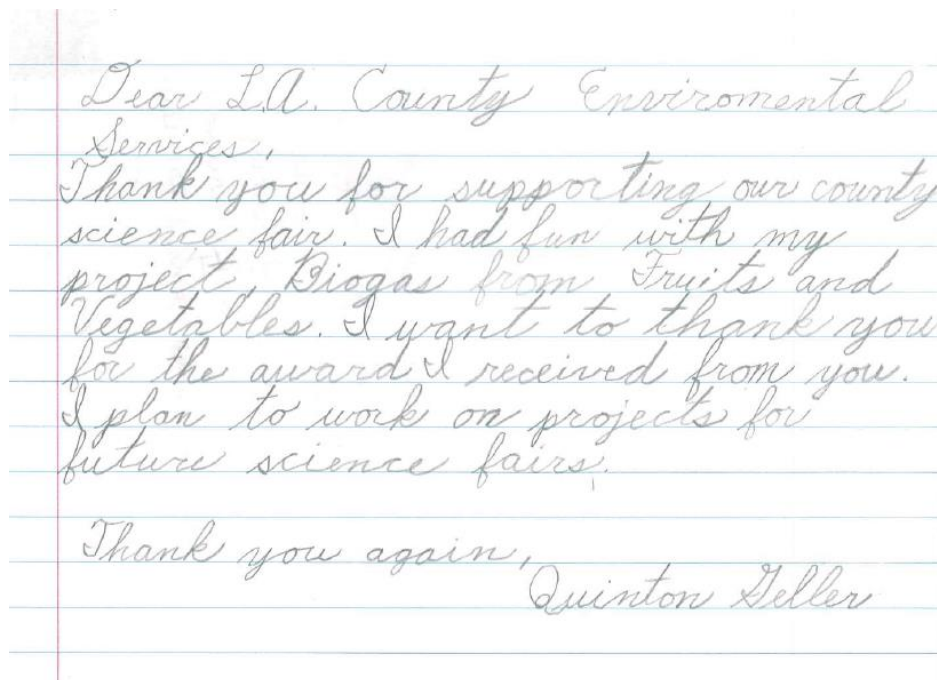 Dear L.A. County Enviromental
Services,
Thank you for supporting our county
science fair. I had fun with my
project, Biogas from Fruits and
Vegetables. I want to thank you
for the award I received from you.
I plan to work on projects for
future science fairs.
Thank you again,
Quinton Geller